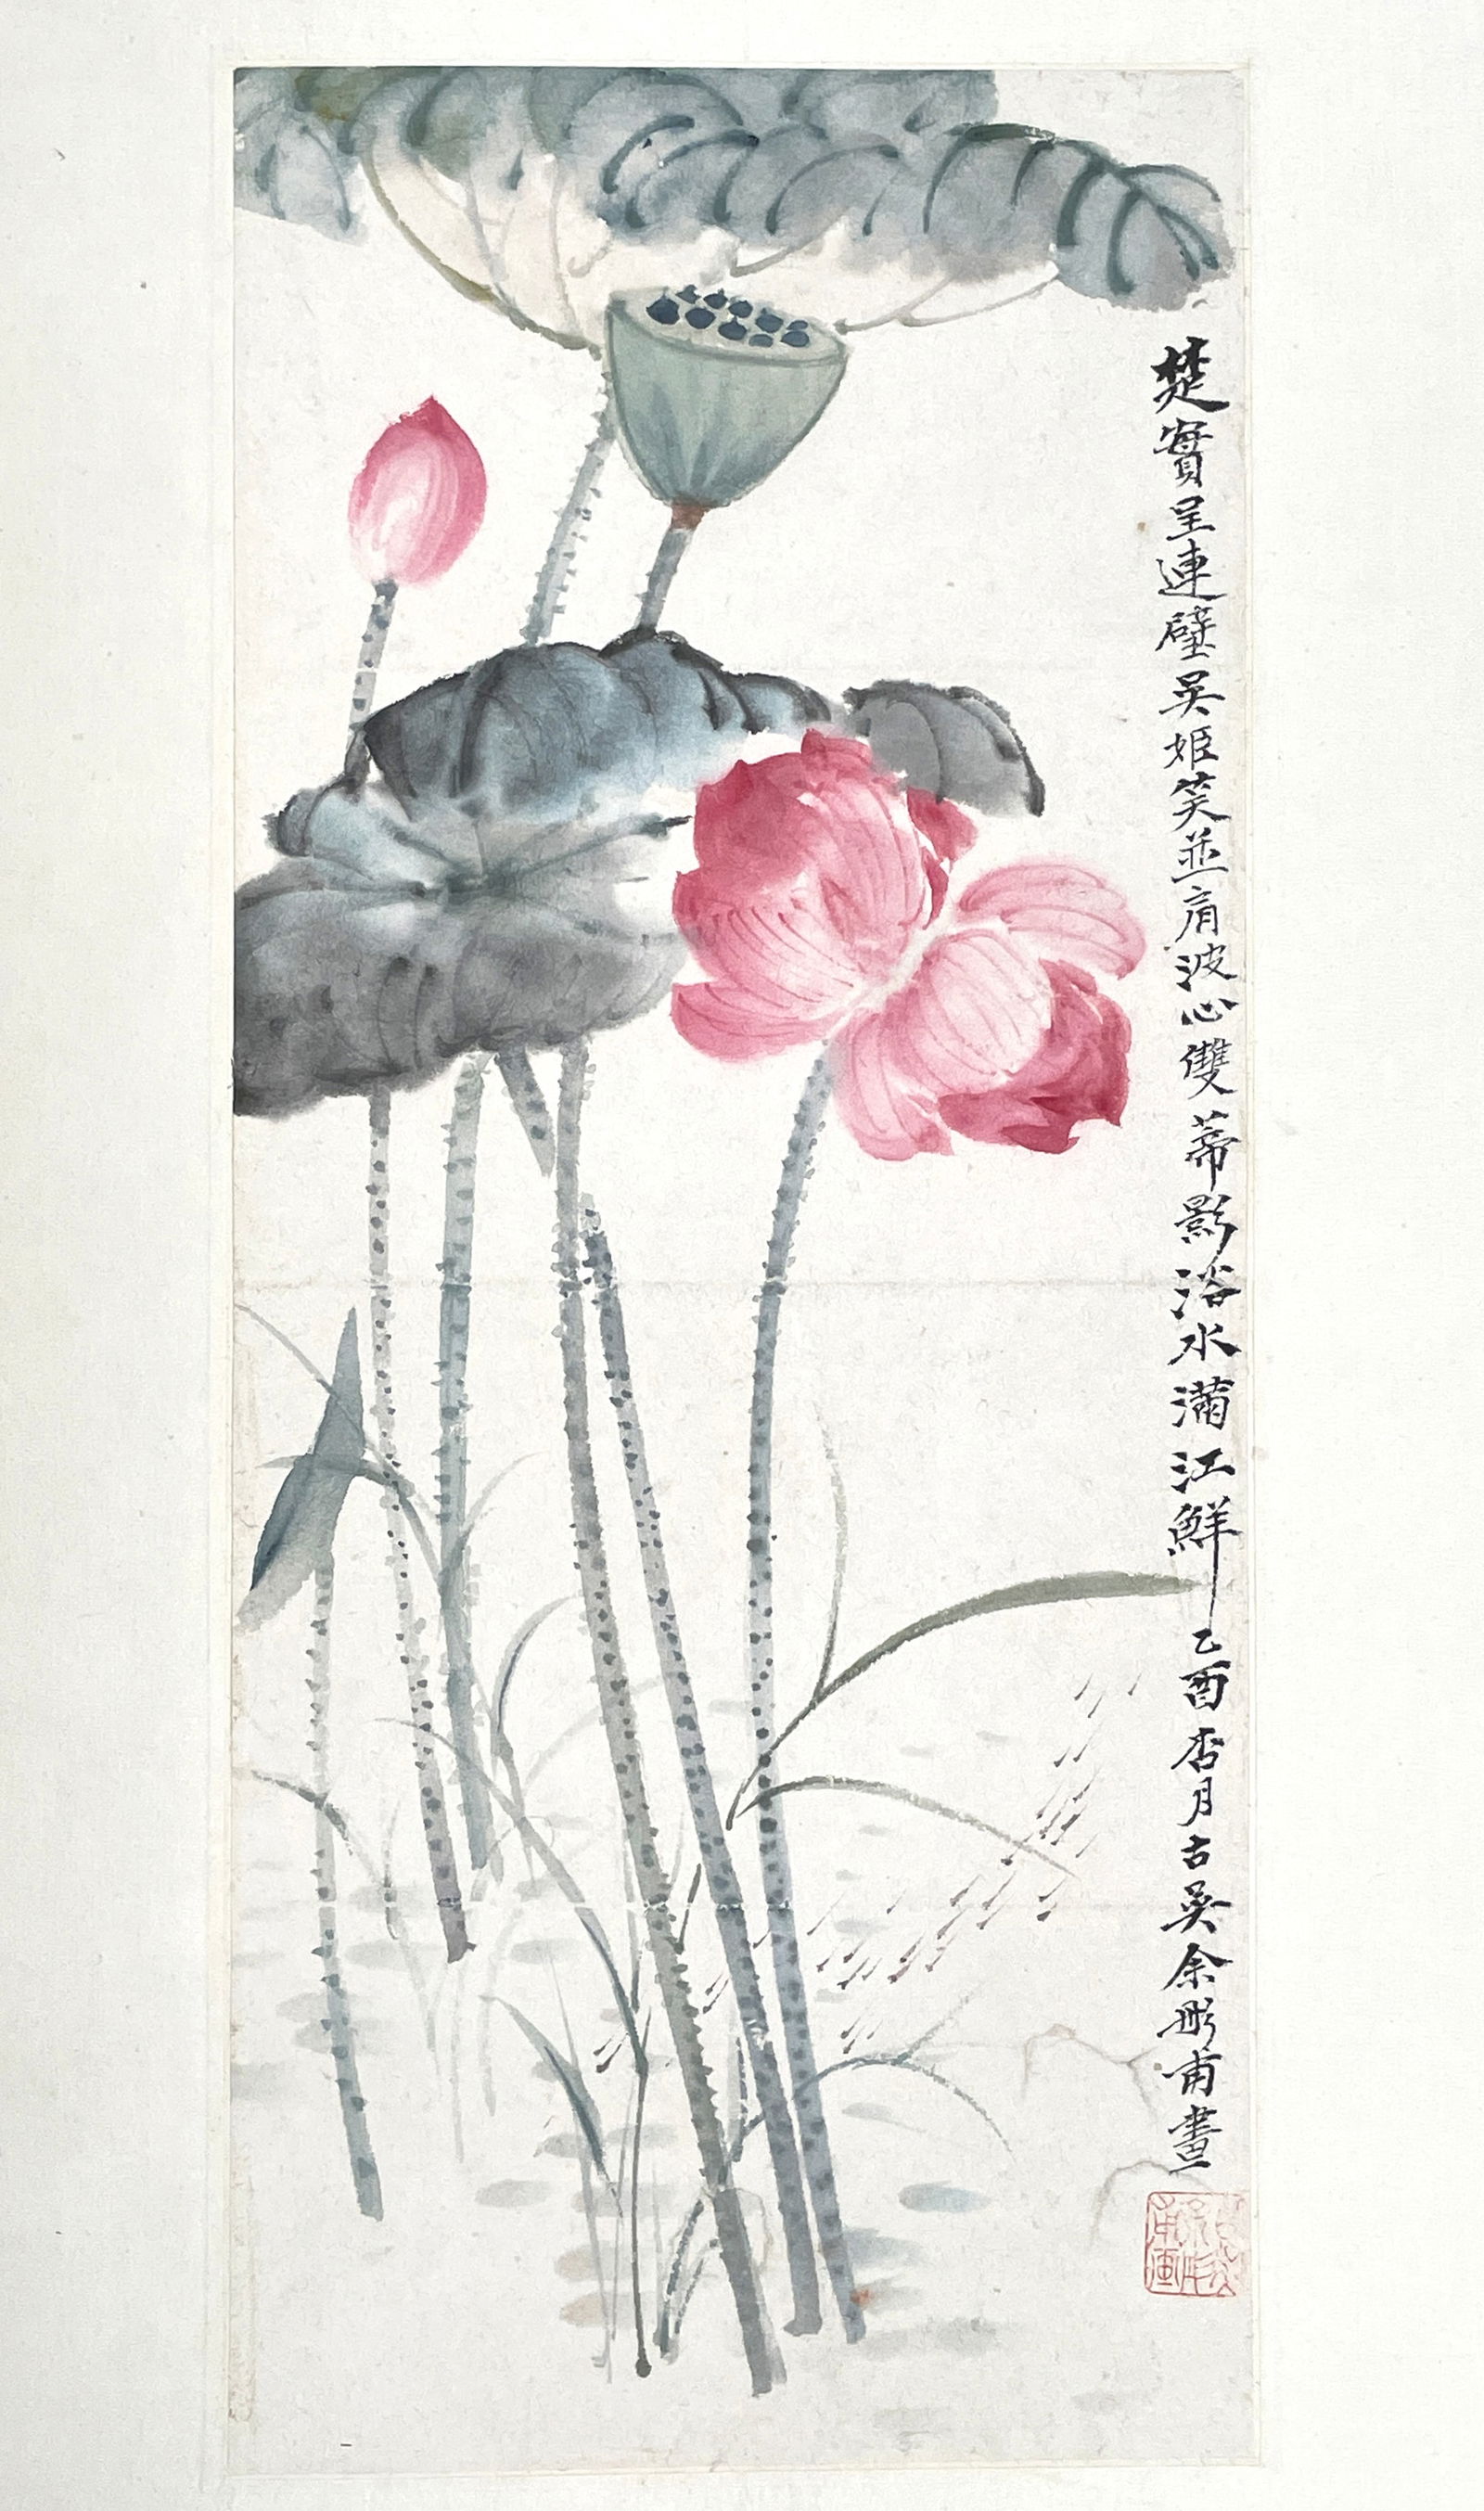 楚實呈連璧吳姬笑並肩波心雙蒂影浴水滿江鮮乙酉杏月古吳余彤甫畫